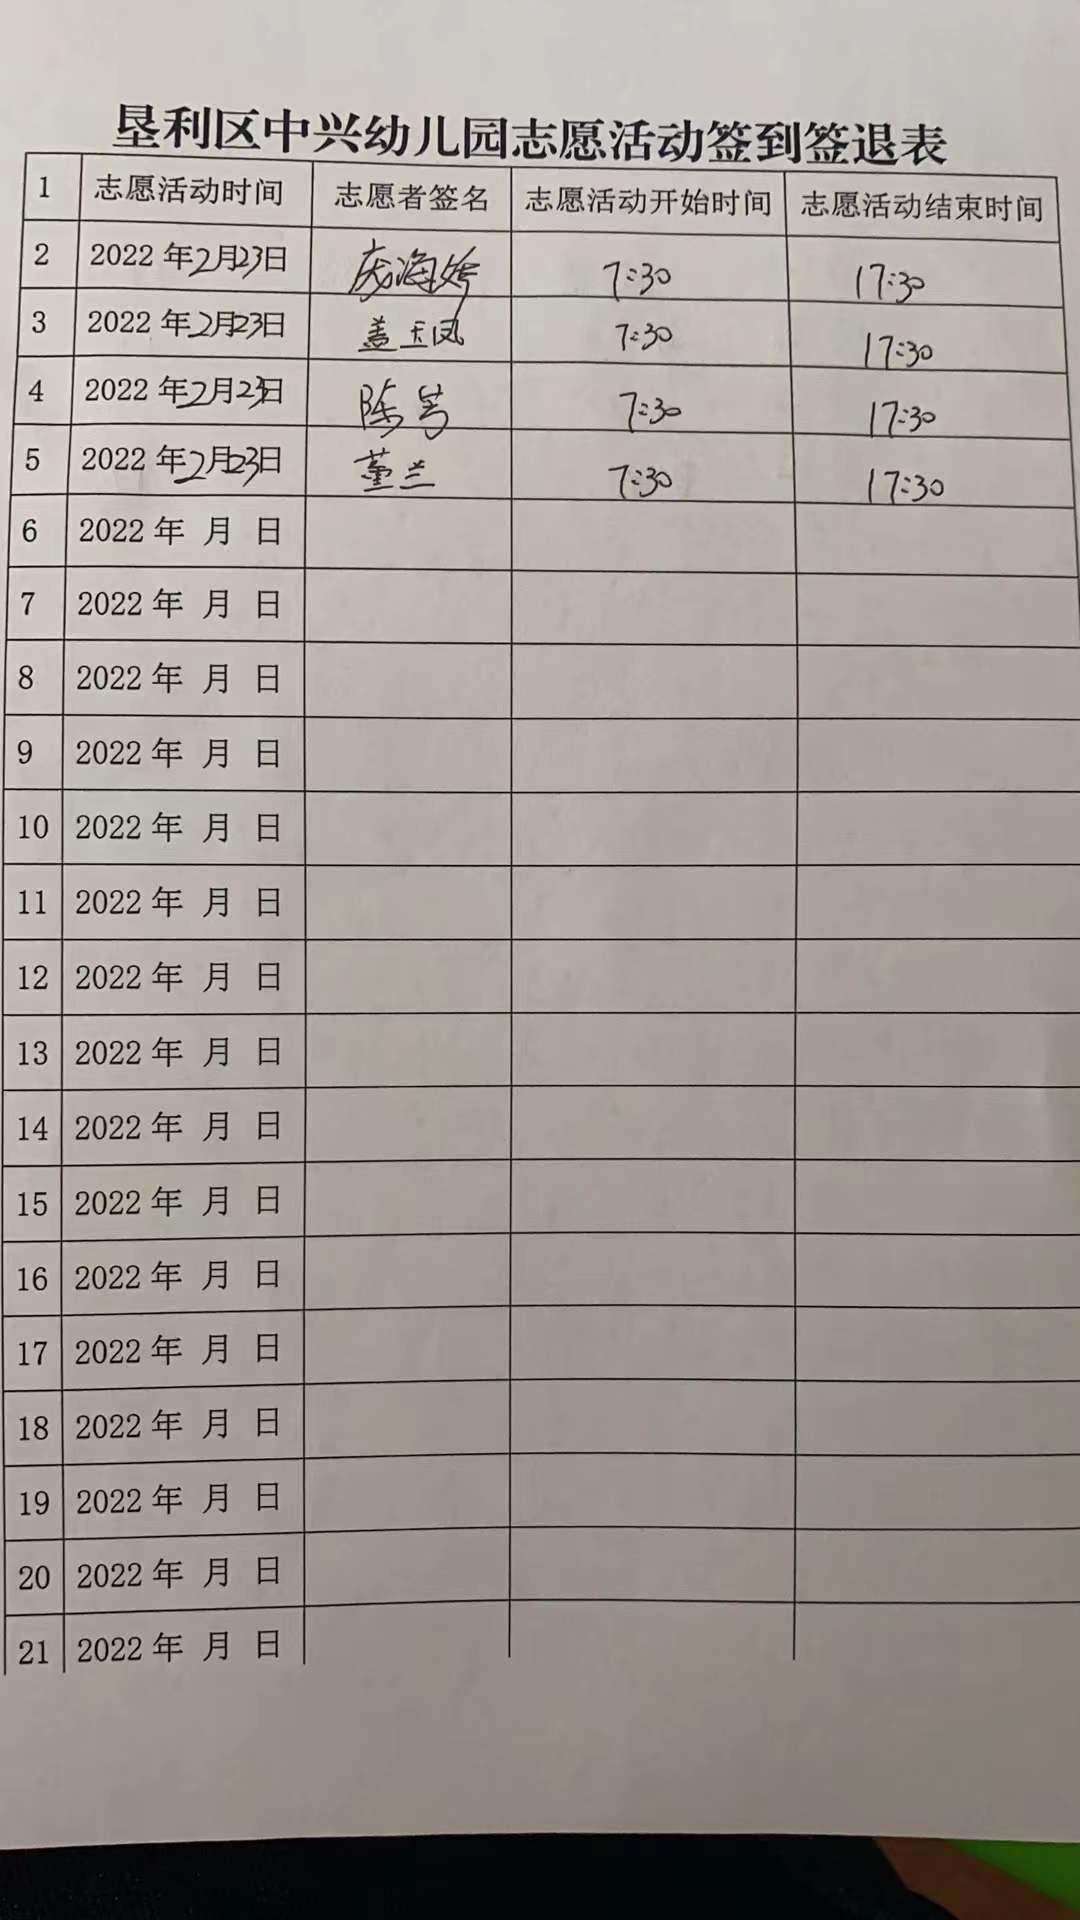 垦利区中兴幼儿园志愿活动签到签退表
1 志愿活动时间 志愿者签名 志愿活动开始时间 志愿活动结束时间
2 2022 年2月23日 庞海娇 7:30 17:30
3 2022 年2月23日 盖玉凤 7:30 17:30
4 2022 年2月23日 陈 7:30 17:30
5 2022 年2月23日 董兰 7:30 17:30
6 2022 年 月 日
7 2022 年 月 日
8 2022 年 月 日
9 2022 年 月 日
10 2022 年 月 日
11 2022 年 月 日
12 2022 年 月 日
13 2022 年 月 日
14 2022 年 月 日
15 2022 年 月 日
16 2022 年 月 日
17 2022 年 月 日
18 2022 年 月 日
19 2022 年 月 日
20 2022 年 月 日
21 2022 年 月 日